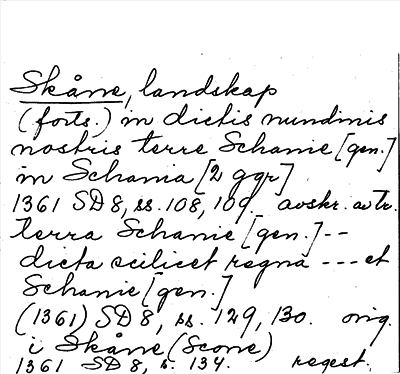 Skåne, landskap
(forts.) in dictis nundinis
nostris terre Schanie [gen.]
in Schania [2 ggr]
1361 SD 8, ss. 108, 109. avskr. av tr.
terra Schanie [gen.] --
dicta scilicet regna --- et
Schanie [gen.]
(1361) SD 8, ss. 129, 130. orig.
i Skåne (Scone)
1361 SD 8, s. 134. regest.